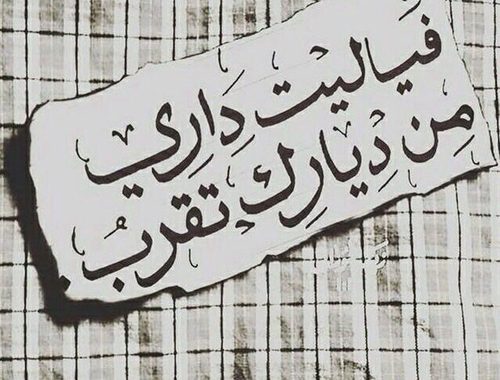 فَيَاليت دَارِي
مِن دِيارِك تقربُ